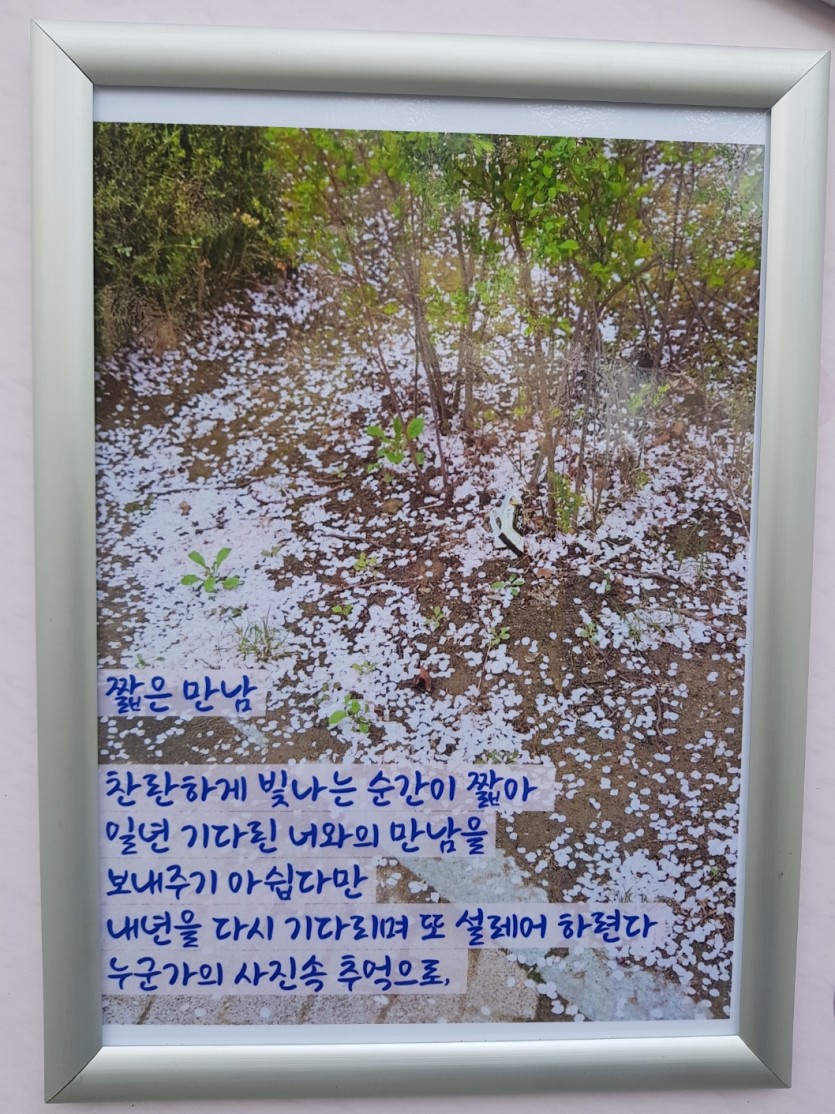 짧은 만남
찬란하게 빛나는 순간이 짧아
일년 기다린 너와의 만남을
보내주기 아쉽다만
내년을 다시 기다리며 또 설레어 하련다
누군가의 사진속 추억으로,